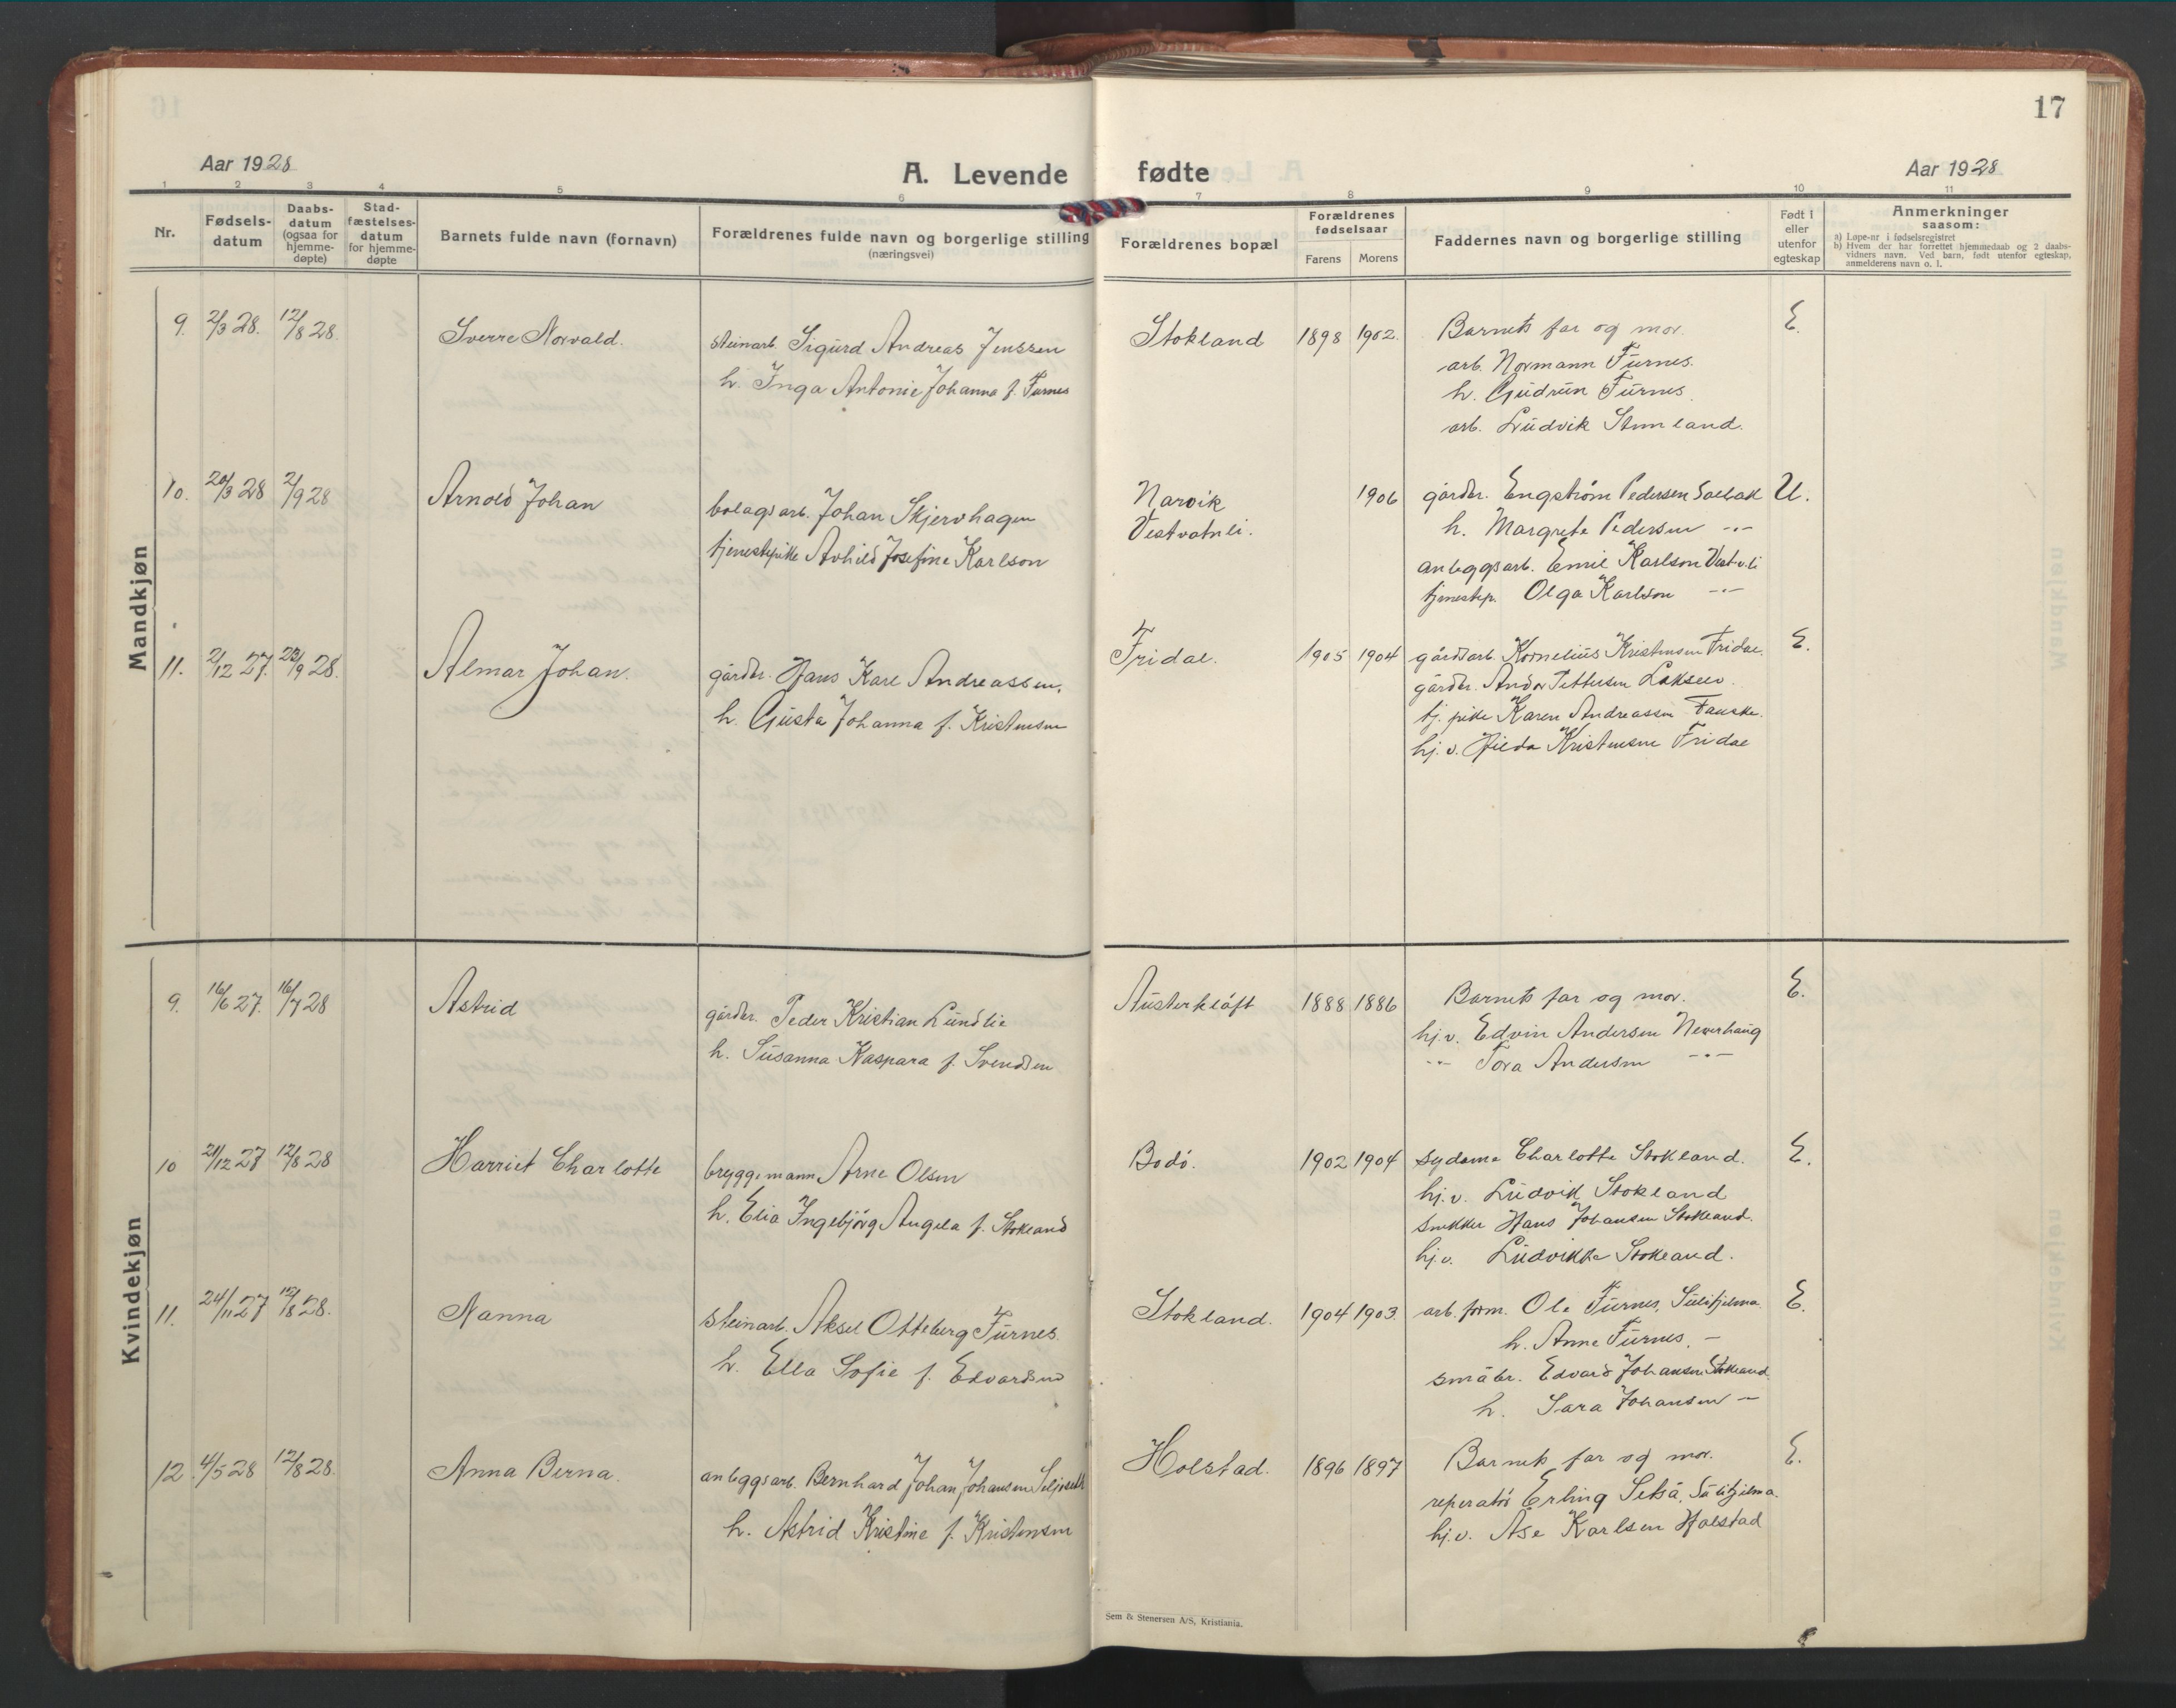 17
Aar 1928
A. Levende fødte
Aar 1928
1 2 3 4 5 6 7 8 9 10 11
Nr.
Fødsels-datum
Daabs-datum (ogsaa for hjemme-døpte)
Stad-fæstelses-datum for hjemme-døpte
Barnets fulde navn (fornavn)
Forældrenes fulde navn og borgerlige stilling (næringsvei)
Forældrenes bopæl
Forældrenes fødselsaar
Farens Morens
Faddernes navn og borgerlige stilling
Født i eller utenfor egteskap
Anmerkninger saasom:
a) Løpe-nr i fødselsregistret
b) Hvem der har forrettet hjemmedaab og 2 daabs-
vidners navn. Ved barn, født utenfor egteskap,
anmelderens navn o. l.
Mandkjøn
9. 2/3 28. 12/8 28. Sverre Norvald. steinarb. Sigurd Andreas Jenssen Stokland 1898 1902. Barnets far og mor. E.
h. Inga Antonie Johanna f. Furnes arb. Normann Furnes.
h. Gudrun Furnes.
arb. Ludvik
10. 20/3 28 2/9 28 Arnold Johan bolagsarb. Johan Skjervhagen Narvik 1906 gårdbr. Engstrøm Pedersen U.
tjenestepike Arhild Josefine Karlson Vestvatnli. h. Margrete Pedersen -"-
anleggsarb. Emil Karlson Vestv.li
tjenestep. Olga Karlson -"-
11. 2/12 27. 23/9 28. Almar Johan. gårdbr. Hans Karl Andreassen, Fridal. 1905 1904 gårdsarb. Kornelius Kristensen Fridal. E.
h. Gusta Johanna f. Kristensen gårdbr. Andor Pettersen
tj. pike Karen Andreassen Fauske.
hj. v. Hilda Kristensen Fridal
Kvindekjøn
9. 16/6 27. 16/7 28 Astrid gårdbr. Peder Kristian Lundlie Austerkløft 1888 1886 Barnets far og mor. E.
h. Susanna Kaspara f. Svendsen hj. v. Edvin Andersen Neverhaug
-"- Tora Andersen -"-
10 21/12 27 12/8 28 Harriet Charlotte bryggemann Arne Olsen Bodø. 1902 1904 sydame Charlotte Stokland. E.
h. Elia Ingebjørg Angela f. Stokland hj. v. Ludvik Stokland
snekker Hans Johansen Stokland.
hj. v. Ludvikka Stokland.
11. 24/11 27 12/8 28. Nanna steinarb. Aksel Otteberg Furnes. Stokland. 1904 1903. arb. form. Ole Furnes, Sulitjelma. E.
h. Ella Sofie f. Edvardsen h. Anna Furnes. -
småbr. Edvard Johansen Stokland.
h. Sara Johansen -
12. 4/5 28 12/8 28. Anna Berna. anleggsarb. Bernhard Johan Johansen Holstad. 1896 1897 Barnets far og mor. E.
h. Astrid Kristine f. Kristensen reperatør Erling Setså, Sulitjelma.
hj. v. Åse Karlsen Holstad
Sem & Stenersen A/S, Kristiania.